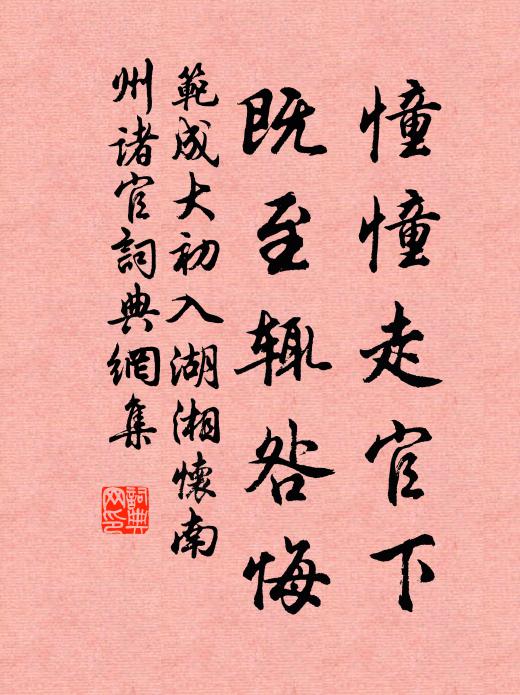 憧憧走官下
既至辄咎悔
範成大初入湖湘懷南
州诸官詞典網集
詞典
网印